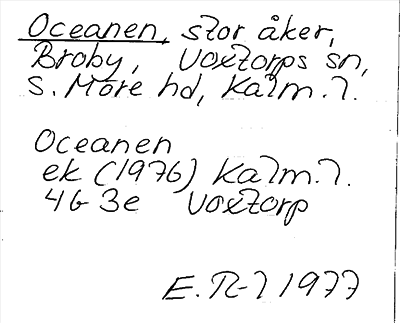 Oceanen, stor åker,
Broby, Voxtorps sn,
S. Möre hd, Kalm. l.
Oceanen
ek (1976) Kalm. l.
4G 3e Voxtorp
E. R-l 1977